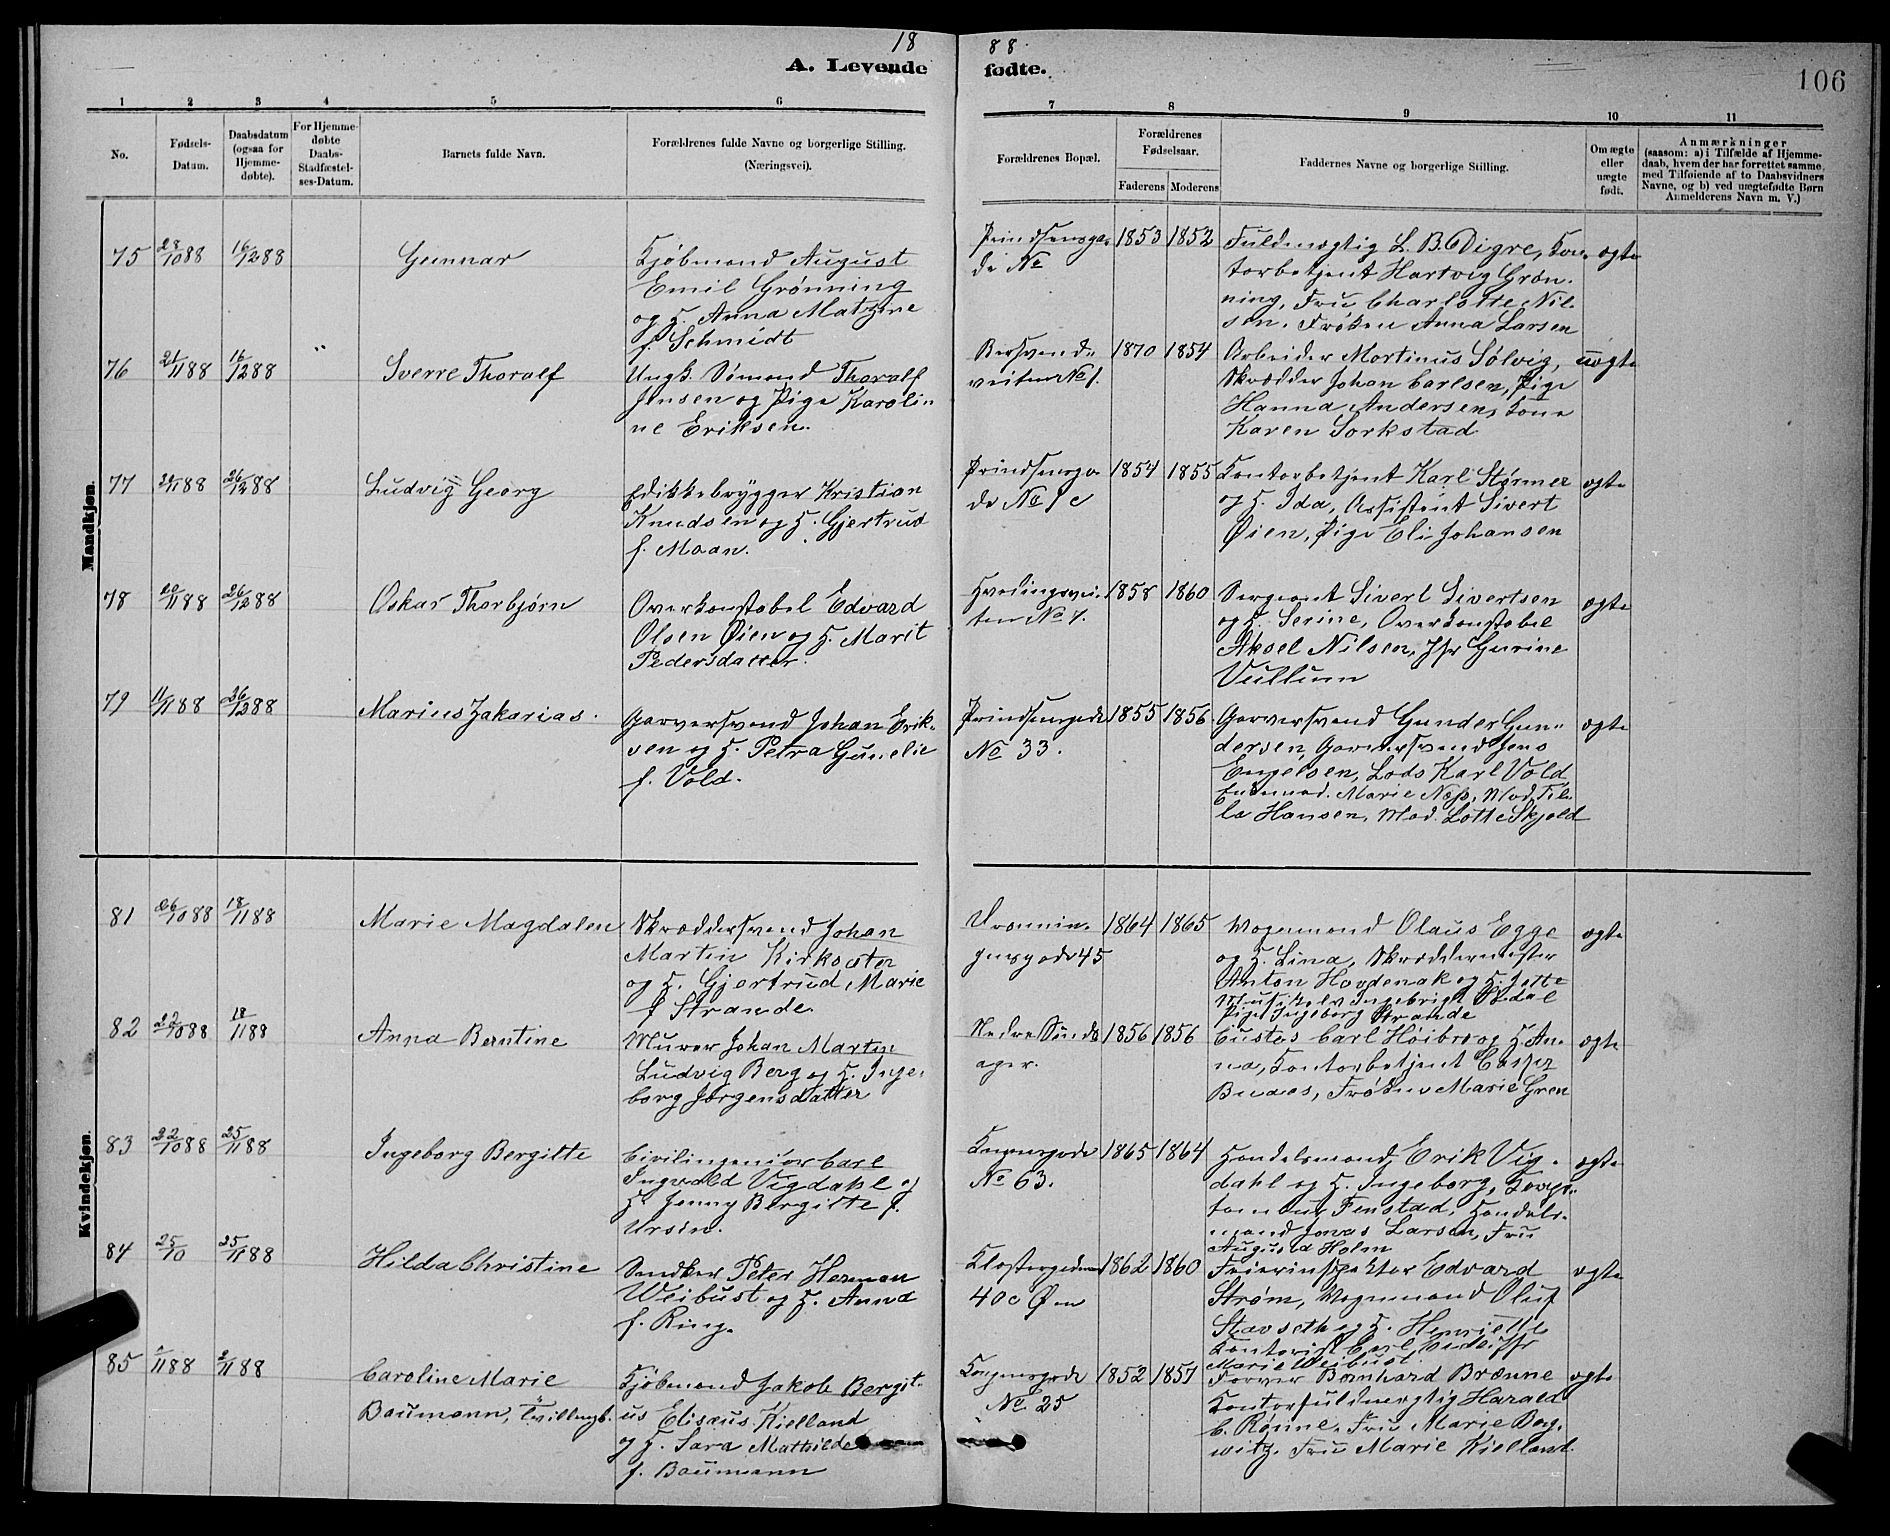 18 88
A. Levende fødte.
106
1 2 3 4 5 6 7 8 9 10 11
No.
Fødsels-
Datum.
Daabsdatum
(ogsaa for
Hjemme-
døbte).
For Hjemme-
døbte
Daabs-
Stadfæstel-
ses-Datum.
Barnets fulde Navn.
Forældrenes fulde Navne og borgerlige Stilling.
(Næringsvei).
Forældrenes Bopæl.
Forældrenes
Fødselsaar.
Faderens Moderens
Faddernes Navne og borgerlige Stilling.
Om ægte
eller
uægte
født.
Anmærkninger
(saasom: a) i Tilfælde af Hjemme-
daab, hvem der har forrettet samme,
med Tilføiende af to Daabsvidners
Navne, og b) ved uægtefødte Børn
Anmelderens Navn m. V.)
Mandkjøn.
75 28/10 88 16/12 88 Gunnar
Kjøbmand August
Emil Grønning
og H. Anna Matzine
f. Schmidt
Prindsensga-
de No
1853 1852
Fuldmægtig L. B. Digre, Kon-
torbetjent Hartvig Grøn-
ning, Fru Charlotte Nil-
sen, Frøken Anna Larsen
ægte
76 21/11 88 16/12 88 Sverre Thoralf
Ungk. Sømand Thoralf
Jensen og Pige Karoli-
ne Eriksen.
Bersvends-
veiten No 1.
1870 1854
Arbeider Martinus Sølvig,
Skrædder Johan Carlsen, Pige
Hanna Andersen, Kone
Karen Sorkstad
uægte
77 /11 88 26/12 88 Ludvig Georg
Edikkebrygger Kristian
Knudsen og H. Gjertrud
f. Moan.
Prindsensga-
de No 1c
1854 1855
Kontorbetjent Karl Størmer
og H. Ida, Assistent Sivert
Øien, Pige Eli Johansen
ægte
78 20/11 88 26/12 88 Oskar Thorbjørn
Overkonstabel Edvard
Olsen Øien og H. Marit
Pedersdatter.
Hvedingsvei-
ten No 7.
1858 1860
Sergeant Sivert Sivertsen
og H. Serine, Overkonstabel
Aksel Nilsen, Jfr Gurine
Vullum
ægte
79 11/11 88 26/12 88 Marius Zakarias.
Garversvend Johan Erik-
sen og H. Petra Gunelie
f. Vold.
Prindsensgade
No 33.
1855 1856
Garversvend Gunder Gun-
dersen, Garversvend Jens
Engelsen, Lods Karl Vold
Marie Næss, Mad.
Hansen, Mad. Lotte Skjold
ægte
Kvindekjøn.
81 26/10 88 18/11 88 Marie Magdalen
Skræddersvend Johan
Martin Kirksæter
og H. Gjertrud Marie
f Strande.
Dronnin-
gensgade 45
1864 1865
Vognmand Olaus Egge
og H. Lina, Skræddermester
Anton Hovdenak og H. Jette
Ingebrigt Opdal
Pige Ingeborg Strande
ægte
82 22/10 88 18/11 88 Anna Berntine
Murer Johan Martin
Ludvig Berg og H. Inge-
borg Jørgensdatter
Nedre
ager.
1856 1856
Custos Carl Høibro og H. An-
na, Kontorbetjent Casper
Budes, Frøken Marie Gren
ægte
83 22/10 88 25/11 88 Ingeborg Bergitte
Civilingeniør Carl
Ingvald Vigdahl og
H. Jenny Bergitte f.
Ursin.
Kongensgade
No 63.
1865 1864
Handelsmand Erik Vig-
dahl og H. Ingeborg,
Fenstad, Handels-
mand Jonas Larsen, Fru
Augusta Holm
ægte
84 25/10 25/11 88 Hilda Christine
Snedker Peter Herman
Weibust og H. Anna
f. Ring.
Klostergaden
40c Øen
1862 1860
Feierinspektør Edvard
Strøm, Vognmand Oluf
Stavseth og H. Henriette
Kontorist Carl
Marie Weibust.
ægte
85 /11 88 2/11 88 Caroline Marie
Baumann, Tvillingb.
Kjøbmand Jakob Bergit-
us Elisæus Kielland
og H. Sara Mathilde
f. Baumann
Kongensgade
No. 25
1852 1857
Farver Bernhard Brænne
Kontorfuldmægtig Harald
C. Rønne, Fru Marie Berg-
witz, Fru Marie Kielland.
ægte